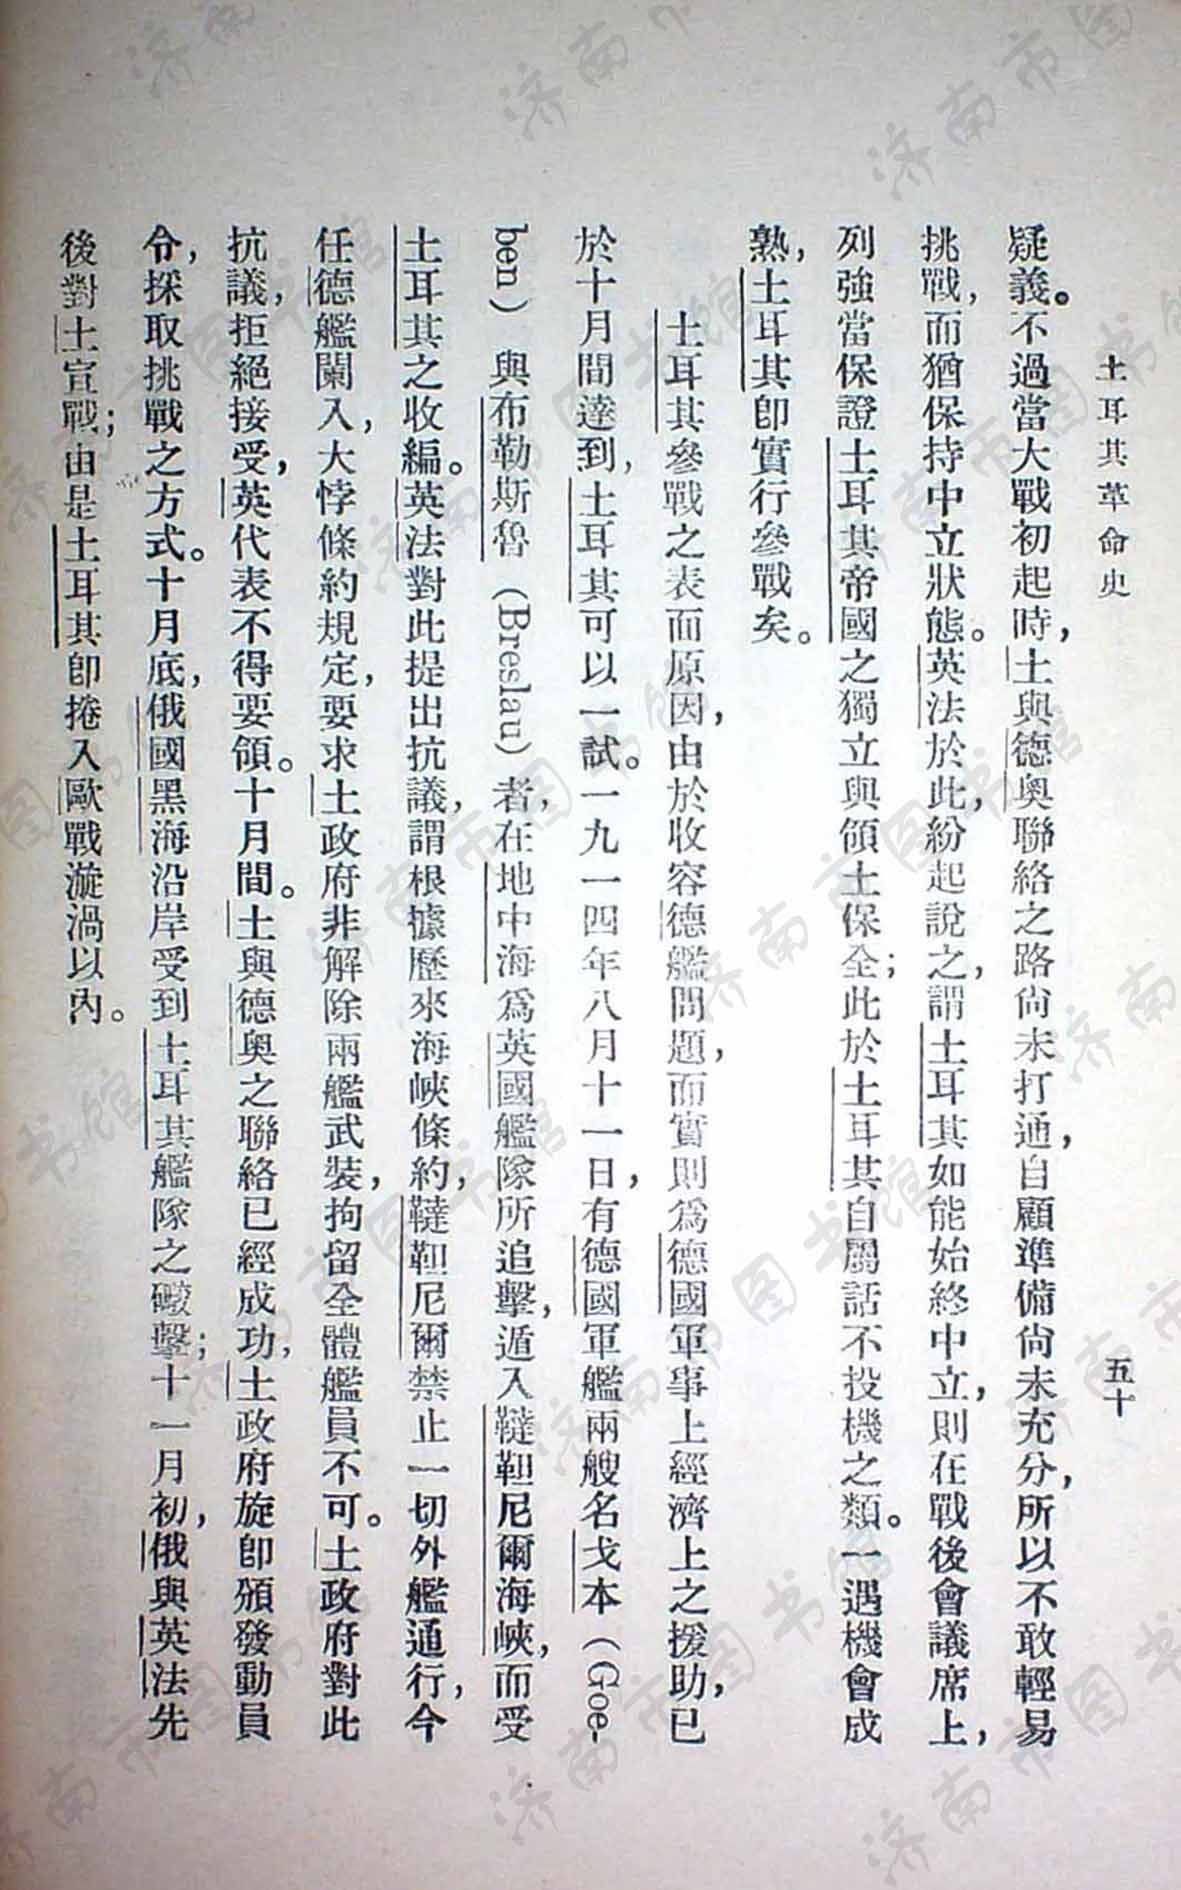 土耳其革命史
五十
疑義。不過當大戰初起時，土與德奧聯絡之路尚未打通，自顧準備尚未充分，所以不敢輕易
挑戰，而猶保持中立狀態。英法於此，紛起說之，謂土耳其如能始終中立，則在戰後會議席上，
列強當保證土耳其帝國之獨立與領土保全；此於土耳其自屬話不投機之類。一遇機會成
熟，土耳其即實行參戰矣。
土耳其參戰之表面原因，由於收容德艦問題，而實則爲德國軍事上經濟上之援助，已
於十月間達到，土耳其可以一試。一九一四年八月十一日，有德國軍艦兩艘名戈本（Goe-
ben）與布勒斯魯（Breslau）者，在地中海爲英國艦隊所追擊，遁入韃靼尼爾海峽，而受
土耳其之收編。英法對此提出抗議，謂根據歷來海峽條約，韃靼尼爾禁止一切外艦通行，今
任德艦闌入，大悖條約規定，要求土政府非解除兩艦武裝，拘留全體艦員不可。土政府對此
抗議，拒絕接受，英代表不得要領。十月間。土與德奧之聯絡已經成功，土政府旋即頒發動員
令，採取挑戰之方式。十月底，俄國黑海沿岸受到土耳其艦隊之礮擊；十一月初，俄與英法先
後對土宣戰；由是土耳其即捲入歐戰漩渦以內。
济南市图书馆